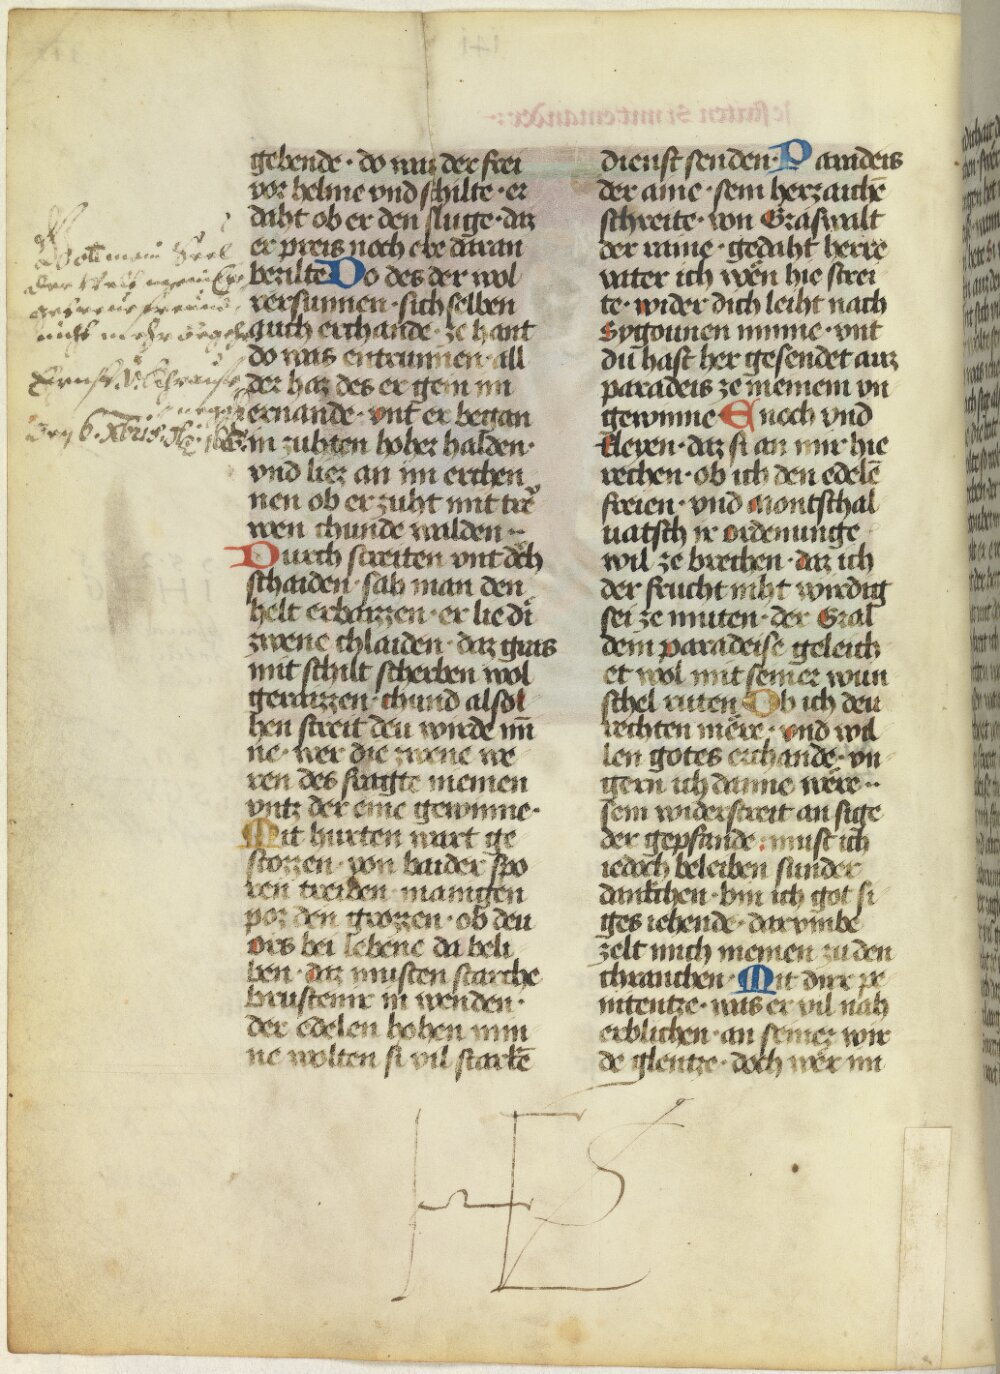 gebende · do was der frei
vor helme vnd schilte · er
daht ob er den sluge · daz
er preis noch ere daran
bezilte Do des der wol
versunnen · sich selben
auch erchande · ze hant
do was entrunnen · all
der haz des er gein im
ernande · vnt er began
in zuhten hoher halden ·
vnd liez an im erchen
nen ob er zuht mit trē
wen chunde walden ··
Durch streiten vnt doch
schaiden · sah man den
helt erbaizzen · er lie di
zwene chlaiden · daz gras
mit schilt scherben wol
geraizzen · chund alsol
hen streit deu wirde im̄
ne · wer die zwene we
ren des fragte meinen
vntz der eine gewinne ·
Mit hurten wart ge
stozzen · von baider spo
ren treiben · manigen
poz den grozzen · ob deu
ors bei lebene da beli
ben · daz musten starche
brustenir in wenden ·
der edelen hohen min
ne wolten si vil starkē
dienst senden · Paradeis
der aine · sein herz auchē
schreite · von Graswalt
der raine · gedaht herre
vater ich wen hie strei
te · wider dich leiht nach
Sygounen minne · vnt
du hast her gesendet auz
paradeis ze meinem vn
gewinne Enoch vnd
Eleyen · daz si an mir hie
rechen · ob ich den edelē
freien · vnd Montschal
uatsch ir ordenunge
wil ze brechen · daz ich
der frucht niht wirdig
sei ze muten · der Gral
dem paradeise geleich
et wol mit seiner wun
schel ruten Ob ich deu
rechten mere · vnd wil
len gotes erchande · vn
gern ich danne were ··
sein widerstreit an sige
der gepfande : must ich
iedoch beleiben sunder
danchen · bin ich got si
ges iehende · darvmbe
zelt mich meinen zu den
chranchen · Mit dirr pe
nitentze · was er vil nah
erblichen · an seiner wir
de glentze · doch wer im